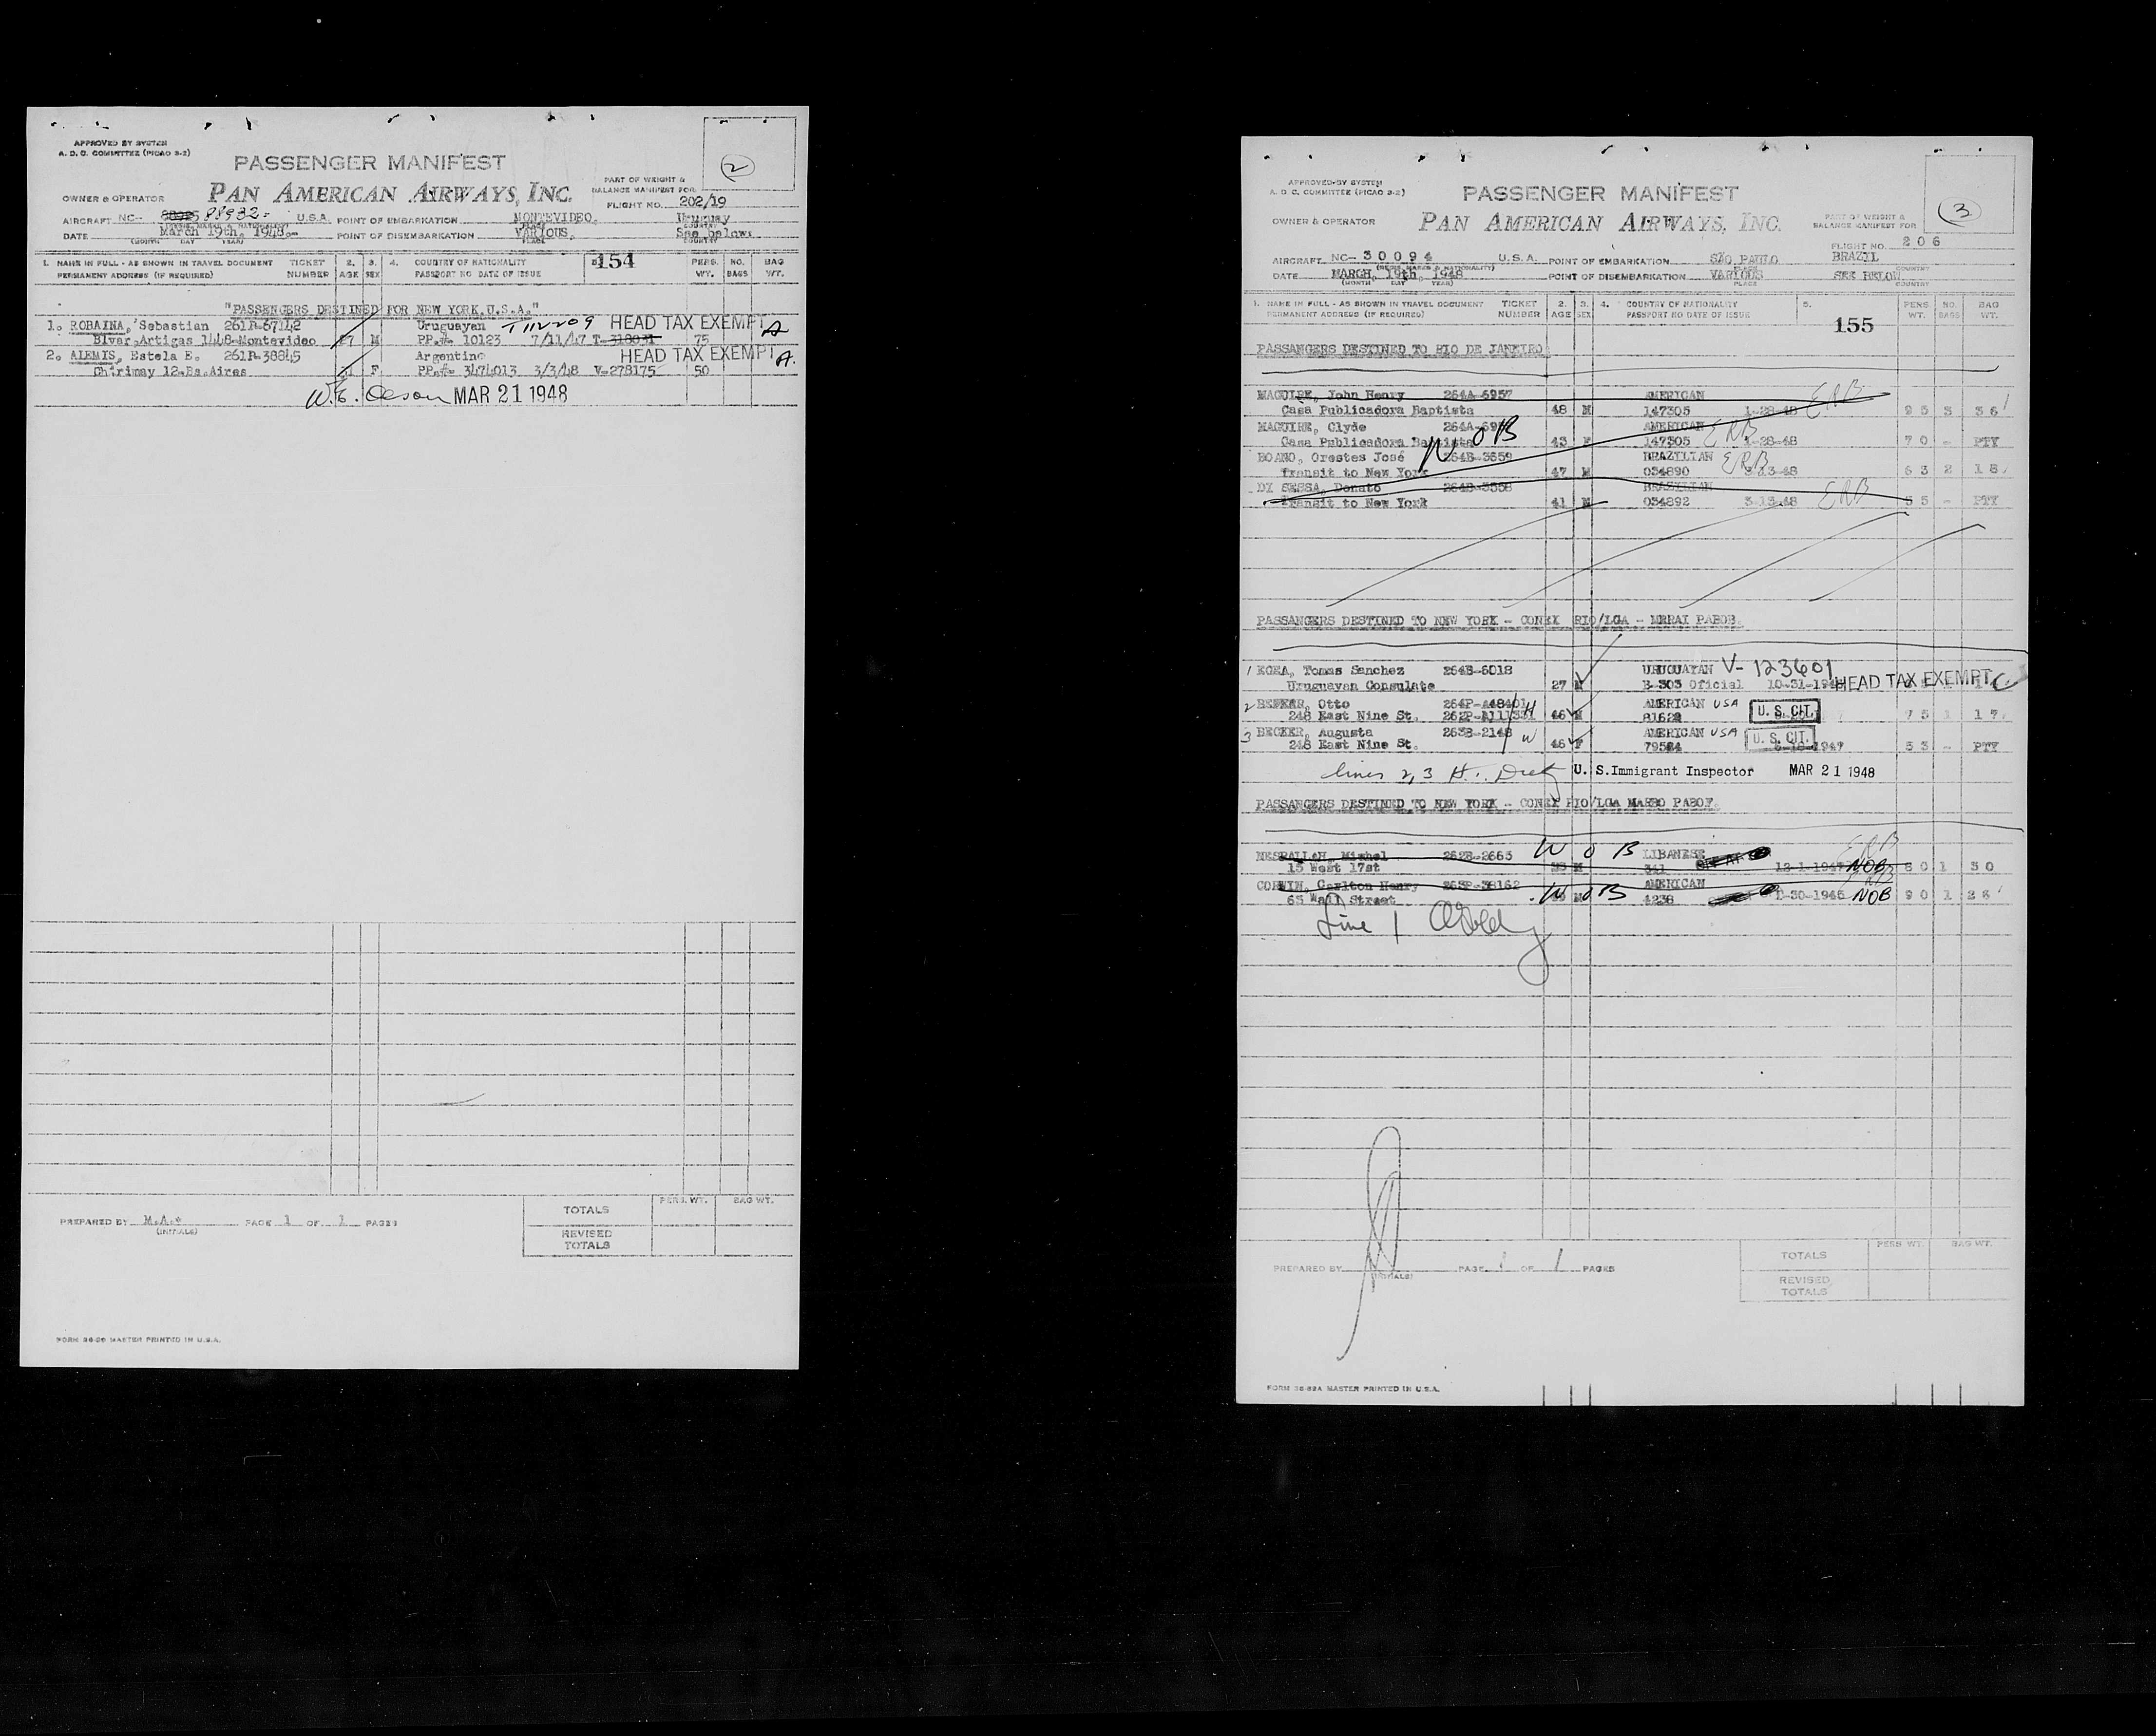 APPROVED BY SYSTEM
A. D. C. COMMITTEE (PICAO 3-2)
2
PASSENGER MANIFEST
PAN AMERICAN AIRWAYS, INC.
PART OF WEIGHT &
BALANCE MANIFEST FOR
OWNER & OPERATOR
FLIGHT NO. 202/19
AIRCRAFT NC- 88932 U.S.A. POINT OF EMBARKATION MONTEVIDEO, Uruguay
DATE March 19th, 1948.- POINT OF DISEMBARKATION VARIOUS, See below:
(MONTH DAY YEAR) PLACE COUNTRY
1. NAME IN FULL - AS SHOWN IN TRAVEL DOCUMENT TICKET 2. 3. 4. COUNTRY OF NATIONALITY 5. 154 PERS. NO. BAG
PERMANENT ADDRESS (IF REQUIRED) NUMBER AGE SEX PASSPORT NO DATE OF ISSUE WT. BAGS WT.
"PASSENGERS DESTINED FOR NEW YORK, U.S.A."
1. ROBAINA, Sebastian 261P-67142 Uruguayan T 1112209 HEAD TAX EXEMPT A
Blvar, Artigas 1448-Montevideo M PP.#- 10123 7/11/47 T-318031 75
2. ALEMIS, Estela E. 261P-38845 Argentine HEAD TAX EXEMPT A.
Chirimay 12-Bs.Aires F PP.#- 3474013 3/3/48 V-278175 50
W.E. Olson MAR 21 1948
TOTALS PERS. WT. BAG WT.
PREPARED BY M.A. PAGE 1 OF 1 PAGES
(INITIALS)
REVISED
TOTALS
FORM 36-89 MASTER PRINTED IN U.S.A.
APPROVED BY SYSTEM
A. D. C. COMMITTEE (PICAO 3-2)
3
PASSENGER MANIFEST
PAN AMERICAN AIRWAYS, INC.
PART OF WEIGHT &
BALANCE MANIFEST FOR
OWNER & OPERATOR
FLIGHT NO. 206
AIRCRAFT NC- 30094 U.S.A. POINT OF EMBARKATION SÃO PAULO BRAZIL
(REGIS. MARKS & NATIONALITY) PLACE COUNTRY
DATE MARCH, 19th, 1948 POINT OF DISEMBARKATION VARIOUS SEE BELOW
(MONTH DAY YEAR) PLACE COUNTRY
1. NAME IN FULL - AS SHOWN IN TRAVEL DOCUMENT TICKET 2. 3. 4. COUNTRY OF NATIONALITY 5. PERS. NO. BAG
PERMANENT ADDRESS (IF REQUIRED) NUMBER AGE SEX PASSPORT NO DATE OF ISSUE 155 WT. BAGS WT.
PASSANGERS DESTINED TO RIO DE JANEIRO
MAGUIRE, John Henry 264A-6957 AMERICAN ERB
Casa Publicadora Baptista 48 M 147305 1-28-48 95 3 36
MAGUIRE, Clyde AMERICAN ERB
Casa Publicadora Baptista NOB 43 F 147305 1-28-48 70 - PTY
BOANO, Orestes José 264B-3659 BRAZILIAN ERB
Transit to New York 47 M 034890 3-13-48 63 2 18
DI SESSA, Donato 264B-3658 BRAZILIAN
Transit to New York 41 M 034892 3-13-48 ERB 55 - PTY
PASSANGERS DESTINED TO NEW YORK - CONEX RIO/LGA - MERAI PABOB
1 EGEA, Tomas Sanchez 264B-6018 URUGUAYAN V-123601
Uruguayan Consulate 27 M E-303 Oficial HEAD TAX EXEMPT
2 Otto AMERICAN USA
248 East Nine St. 46 M 81629 U. S. CIT. 75 1 17
3 BECKER, Augusta 263B-2148 W AMERICAN USA
248 East Nine St. 46 F U. S. CIT. 53 - PTY
lines 2, 3 U. S. Immigrant Inspector MAR 21 1948
PASSANGERS DESTINED TO NEW YORK - CONEX RIO/LGA MARBO PABOF
NESRALLAH, Mishel 262B-2663 W O B LIBANESE ERB
15 West 17st M 341 12-1-1947 NOB 80 1 30
CORWIN, Carlton Henry 263P-38162 AMERICAN
65 Wall Street W O B 4238 NOB 90 1 26
Line 1
TOTALS PERS. WT. BAG WT.
PREPARED BY PAGE 1 OF 1 PAGES
(INITIALS)
REVISED
TOTALS
FORM 36-89A MASTER PRINTED IN U.S.A.